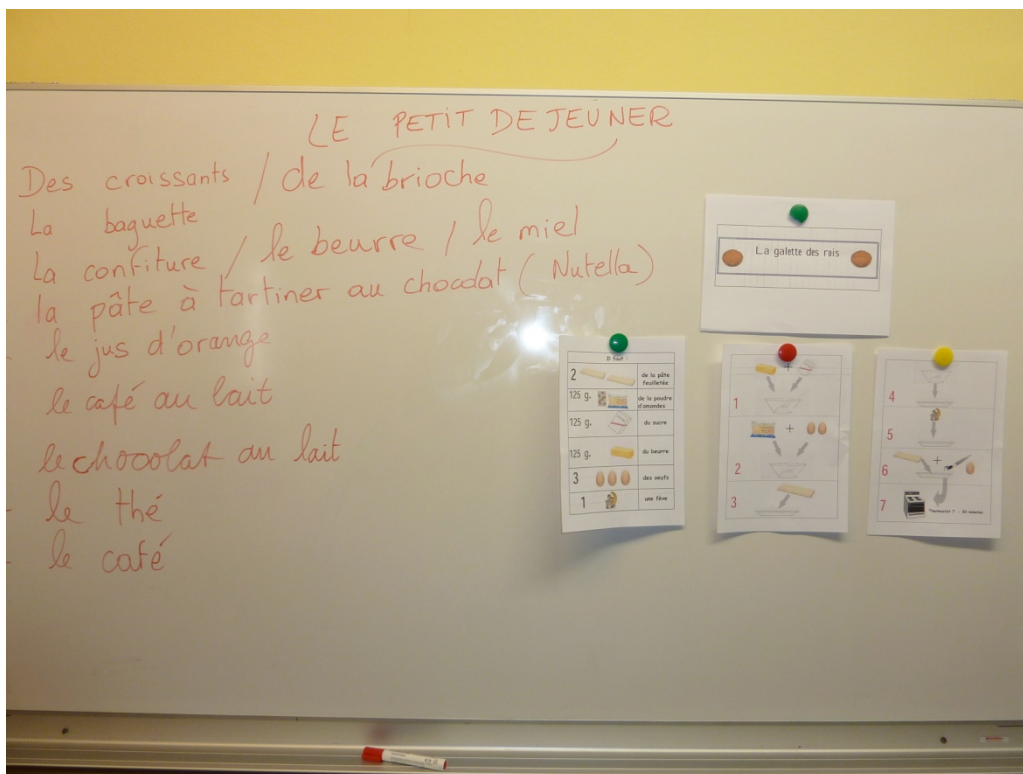 LE PETIT DEJEUNER
Des croissants / de la brioche
La baguette
La confiture / le beurre / le miel
la pâte à tartiner au chocolat ( Nutella)
- le jus d'orange
le café au lait
le chocolat au lait
- le thé
- le café
La galette des rois
Il faut :
2 de la pâte feuilletée
125 g. de la poudre d'amandes
125 g. du sucre
125 g. du beurre
3 des oeufs
1 une fève
+
1
+
2
3
4
5
6 +
7 Thermostat 7 - 30 minutes